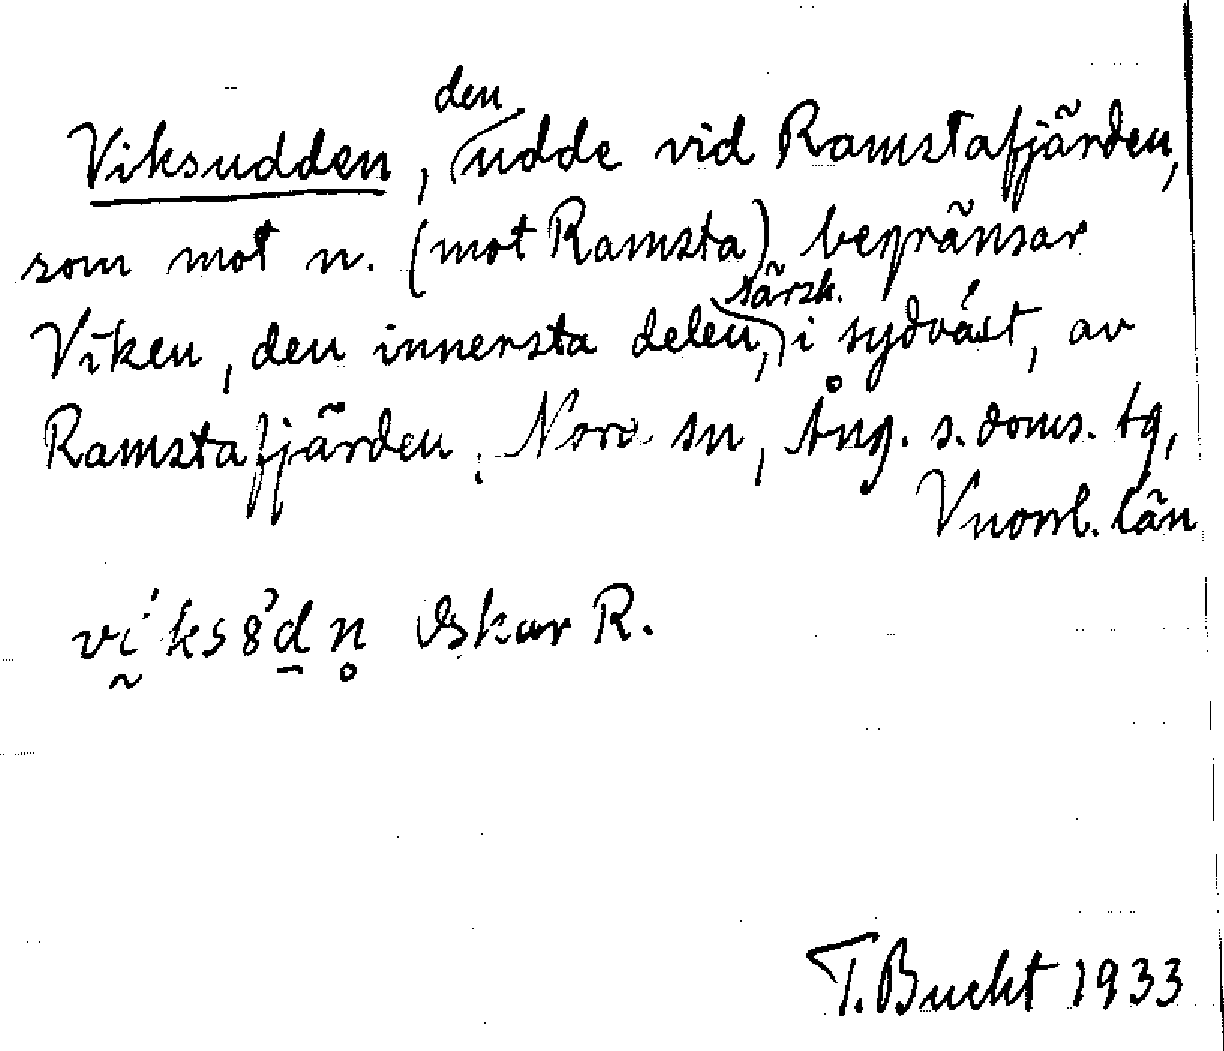 Viksudden, den udde vid Ramstafjärden,
som mot n. (mot Ramsta) begränsar
Viken, den innersta delen, särsk. i sydväst, av
Ramstafjärden. Nora sn, Ång. s. doms. tg,
Vnorrl. län
vi ́ks8̓d̠n̥ Oskar R.
T. Bucht 1933